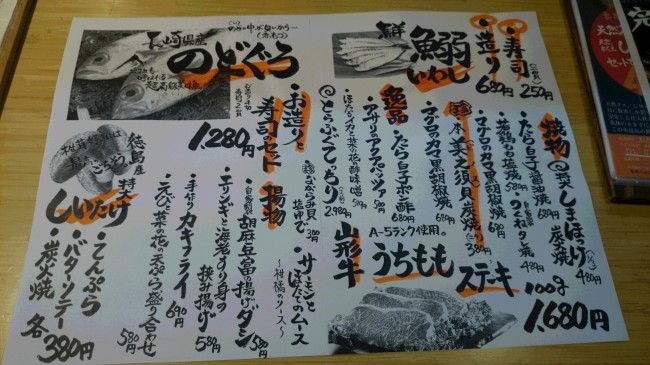 鮮
鰯
いわし
・お造り 680円
・寿司 (二カン) 250円
長崎県産
のどぐろ
お造りと
寿司のセット
1,280円
焼物
◎特大しまほっけ炭火焼 (1/2) 480円
・たら白子醤油焼 680円
・つくねタレ焼 480円
・マグロのカマ黒胡椒焼 680円
・マグロのカマ塩焼
逸品
・たら白子ポン酢 680円
・アサリのアクアパッツァ
・ほたるイカと菜の花の酢味噌
◎とらふぐてっちり 2,980円
・ながらみ貝塩ゆで
・サーモンとほたてのムース
〜柑橘のソース〜
揚物
・自家製胡麻豆腐揚げダシ 580円
・レンコンと海老すり身の挟み揚げ 580円
・手作りカキフライ 690円
・えびと菜の花の天ぷら盛り合わせ 580円
徳島産
特大
しいたけ
・てんぷら
・バターソテー
・炭火焼
各380円
A-5ランク使用。
山形牛
うちもも
ステーキ
100g
1,680円